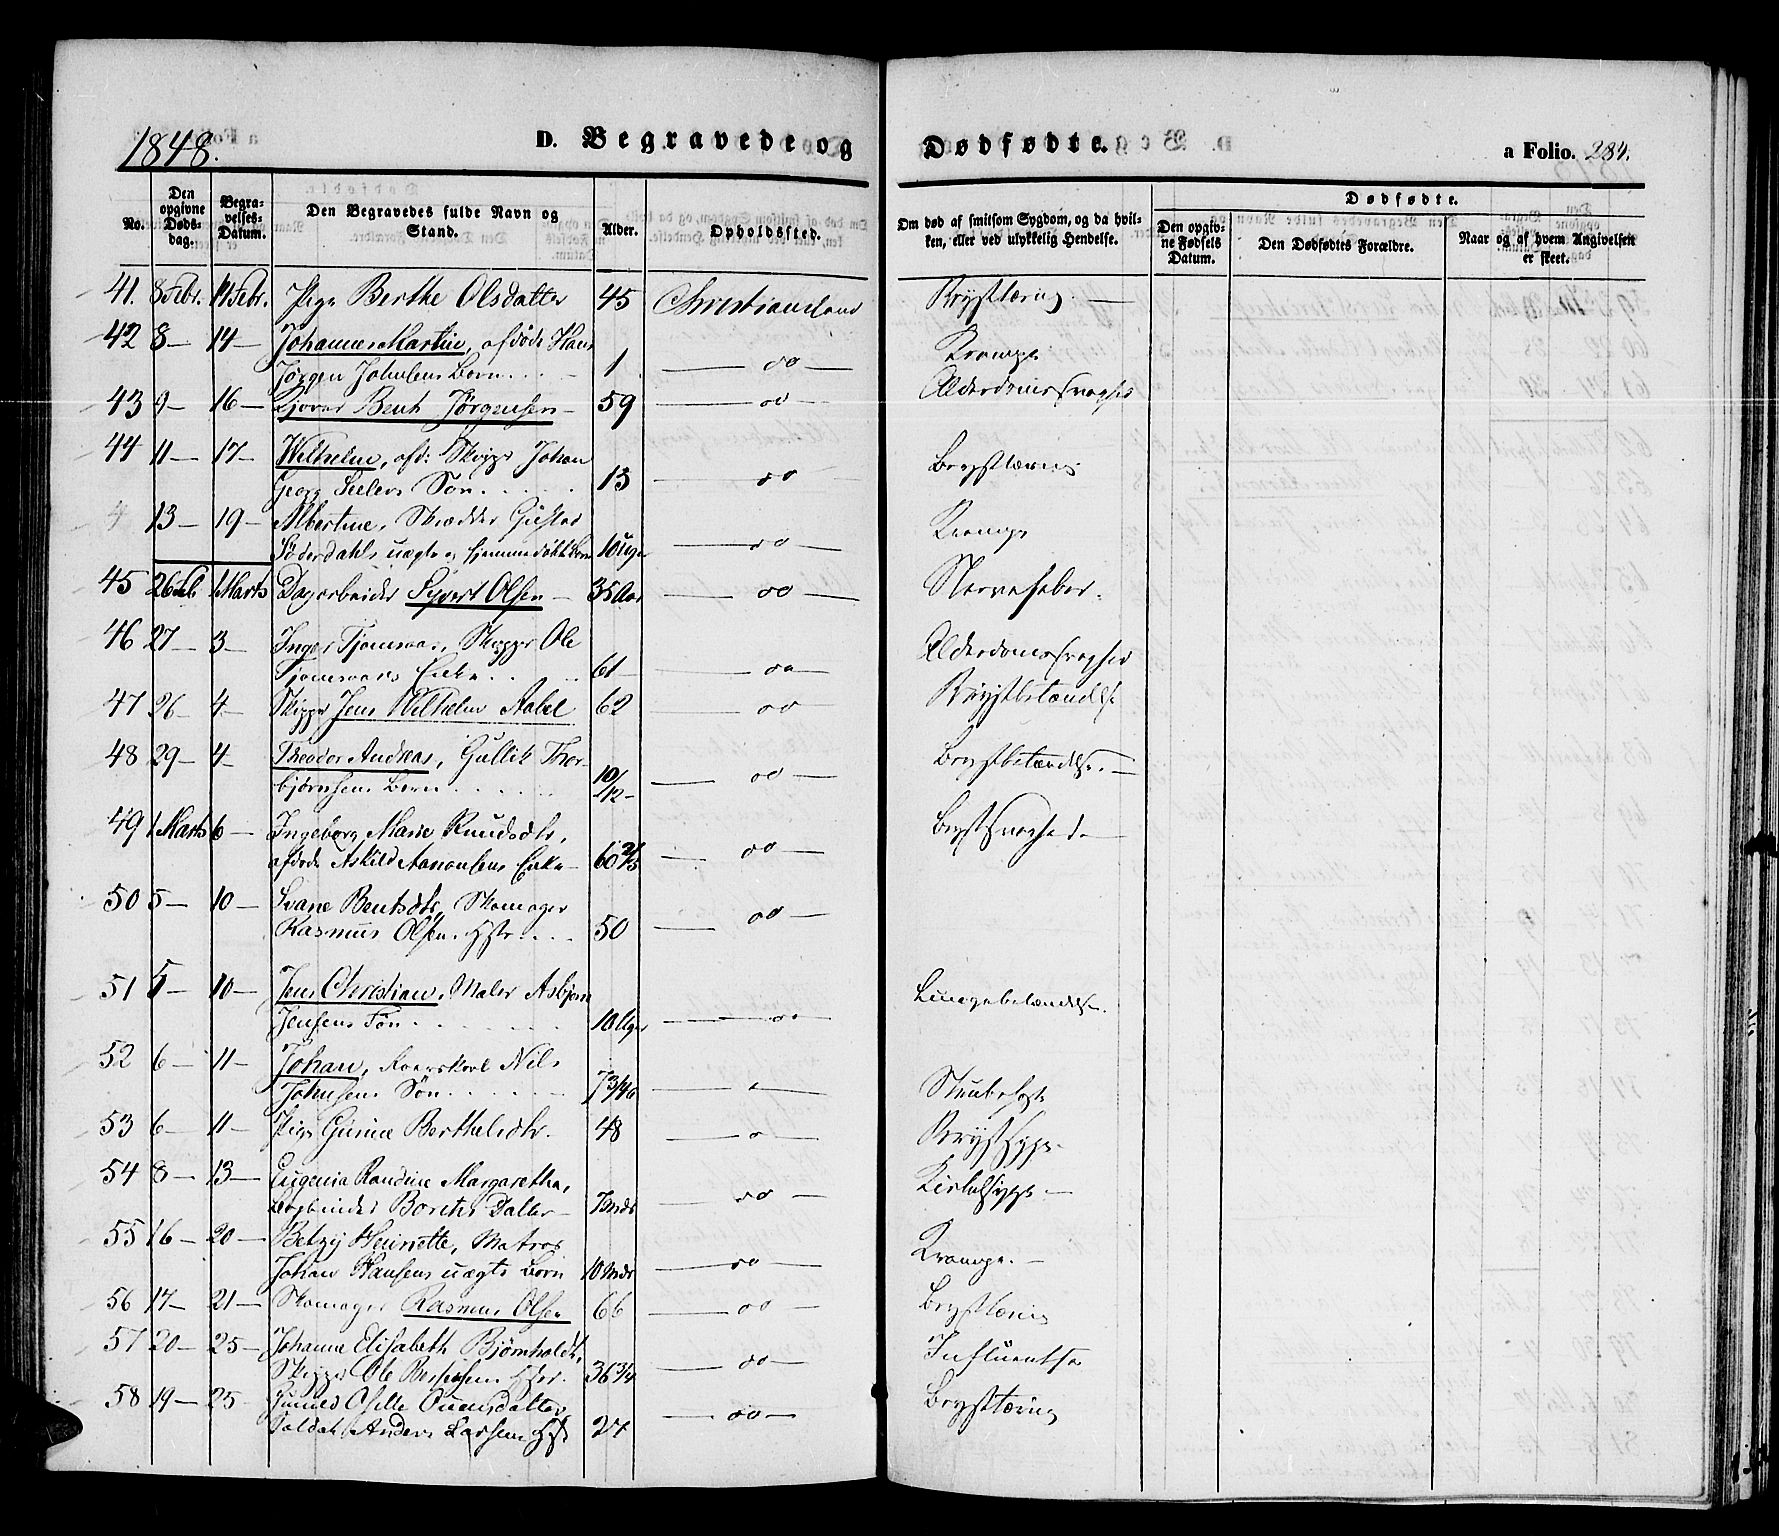 1848.
D. Begravede og Dødfødte.
a Folio. 284.
No.
Den opgivne Døds-dag.
Begra-velses-Datum.
Den Begravedes fulde Navn og Stand.
Alder.
Opholdssted.
Om død af smitsom Sygdom, og da hvil-ken, eller ved ulykkelig Hendelse.
Dødfødte.
Den opgiv-ne Fødsels Datum.
Den Dødfødtes Forældre.
Naar og af hvem Angivelsen er skeet.
41. 8 Febr. 11 Febr. Pige Berthe Olsdatter 45 Christiansand Brysttæring
42 8 — 14 — Johanne Martine, afdøde Hans
Jørgen Johnsens Barn 1 — do — Krampe
43 9 — 16 — Bent Jørgensen — 59 — do — Alderdomssvaghed
44 11 — 17 — Wilhelm, afd: Skipp: Johan
Georg Seelers Søn 13 — do — Brysttæring
4 13 — 19 — Albertine, Skrædder Gustav
Söderdahls uægte og hjemmedøbt Barn 10 Uger — do — Krampe
45 26 Feb 1 Marts Dagarbeider Syvert Olsen — 35 Aar — do — Nervefeber.
46 27 — 3 — Inger Tjomsaas, Skipper Ole
Tjomsaases Enke 61 — do — Alderdomssvaghed
47 26 — 4 — Skipper Jens Wilhelm Aabel 62 — do — Brystbetændelse
48 29 — 4 — Theodor Andreas, Gullik Thor-
bjørnsens Barn 10/12 — do — Brystbetændelse. —
49 1 Marts 6 — Ingeborg Marie Knudsdtr,
afdøde Askild Aanonsens Enke — 60 2/3 — do — Brystsvaghed —
50 5 — 10 — Svane Bentsdtr, Skomager
Rasmus Olsens Hstr 50 — do —
51 5 — 10 — Jens Christian, Maler Asbjørn
Jensens Søn 10 Uger — do — Lungebetændelse.
52 6 — 11 — Johan, Nils
Johnsens Søn 7 3/4 — Strubehoste
53 6 — 11 — Pige Gurine Bertheledtr. 48 — Brystsyge
54 8 — 13 — Eugenia Randine Margaretha,
Bogbinder Borchs Datter — 7 Mdr — do — Kirtelsyge —
55 16 — 20 — Betzy Henriette, Matros
Johan Hansens uægte Barn 10 Mdr — do — Krampe. —
56 17 — 21 — Skomager Rasmus Olsen 66 — do — Brysttæring
57 20 — 25 — Johanne Elisabeth Bjørnholdt,
Skipper Ole Hstr. 36 3/4 — do — Influentsa
58 19 — 25 Gunild Oselle Ounsdatter
Soldat Anders Larsens Hst 27 — do — Brysttæring